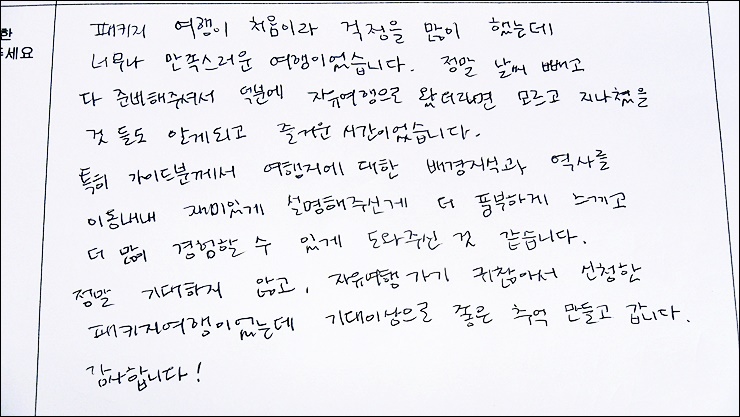 한
주세요
패키지 여행이 처음이라 걱정을 많이 했는데
너무나 만족스러운 여행이었습니다. 정말 날씨 빼고
다 준비해주셔서 덕분에 자유여행으로 왔더라면 모르고 지나쳤을
것 들도 알게되고 즐거운 시간이었습니다.
특히 가이드분께서 여행지에 대한 배경지식과 역사를
이동내내 재미있게 설명해주신게 더 풍부하게 느끼고
더 많이 경험할 수 있게 도와주신 것 같습니다.
정말 기대하지 않고, 자유여행 가기 귀찮아서 신청한
패키지여행이었는데 기대이상으로 좋은 추억 만들고 갑니다.
감사합니다!